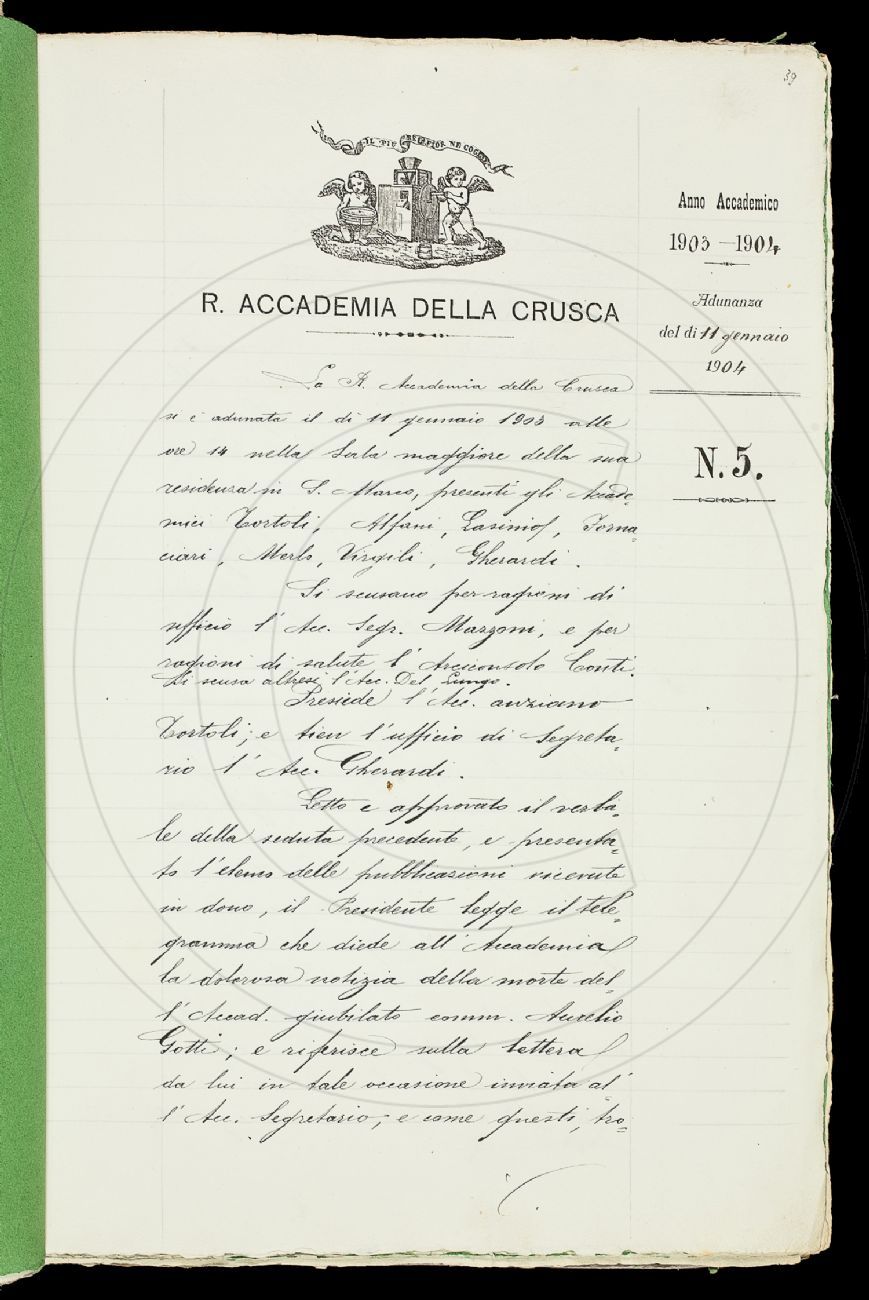 39
IL PIÙ BEL FIOR NE COGLIE
Anno Accademico
1903-1904
R. ACCADEMIA DELLA CRUSCA
Adunanza
del dì 11 gennaio
1904
N. 5.
La R. Accademia della Crusca
si è adunata il dì 11 gennaio 1903 alle
ore 14 nella Sala maggiore della sua
residenza in S. Marco, presenti gli Accade=
mici Tortoli, Alfani, Lasinio, Forna=
ciari, Merlo, Virgili, Gherardi.
Si scusano per ragioni di
ufficio l'Acc. Segr. Mazzoni, e per
ragioni di salute l'Arciconsolo Conti.
Si scusa altresì l'Acc. Del Lungo.
Presiede l'Acc. anziano
Tortoli; e tien l'ufficio di Segreta=
rio l'Acc. Gherardi.
Letto e approvato il verba=
le della seduta precedente, e presenta=
to l'elenco delle pubblicazioni ricevute
in dono, il Presidente legge il tele=
gramma che diede all'Accademia
la dolorosa notizia della morte del=
l'Accad. giubilato comm. Aurelio
Gotti; e riferisce sulla lettera
da lui in tale occasione inviata al=
l'Acc. Segretario; e come questi, tro=